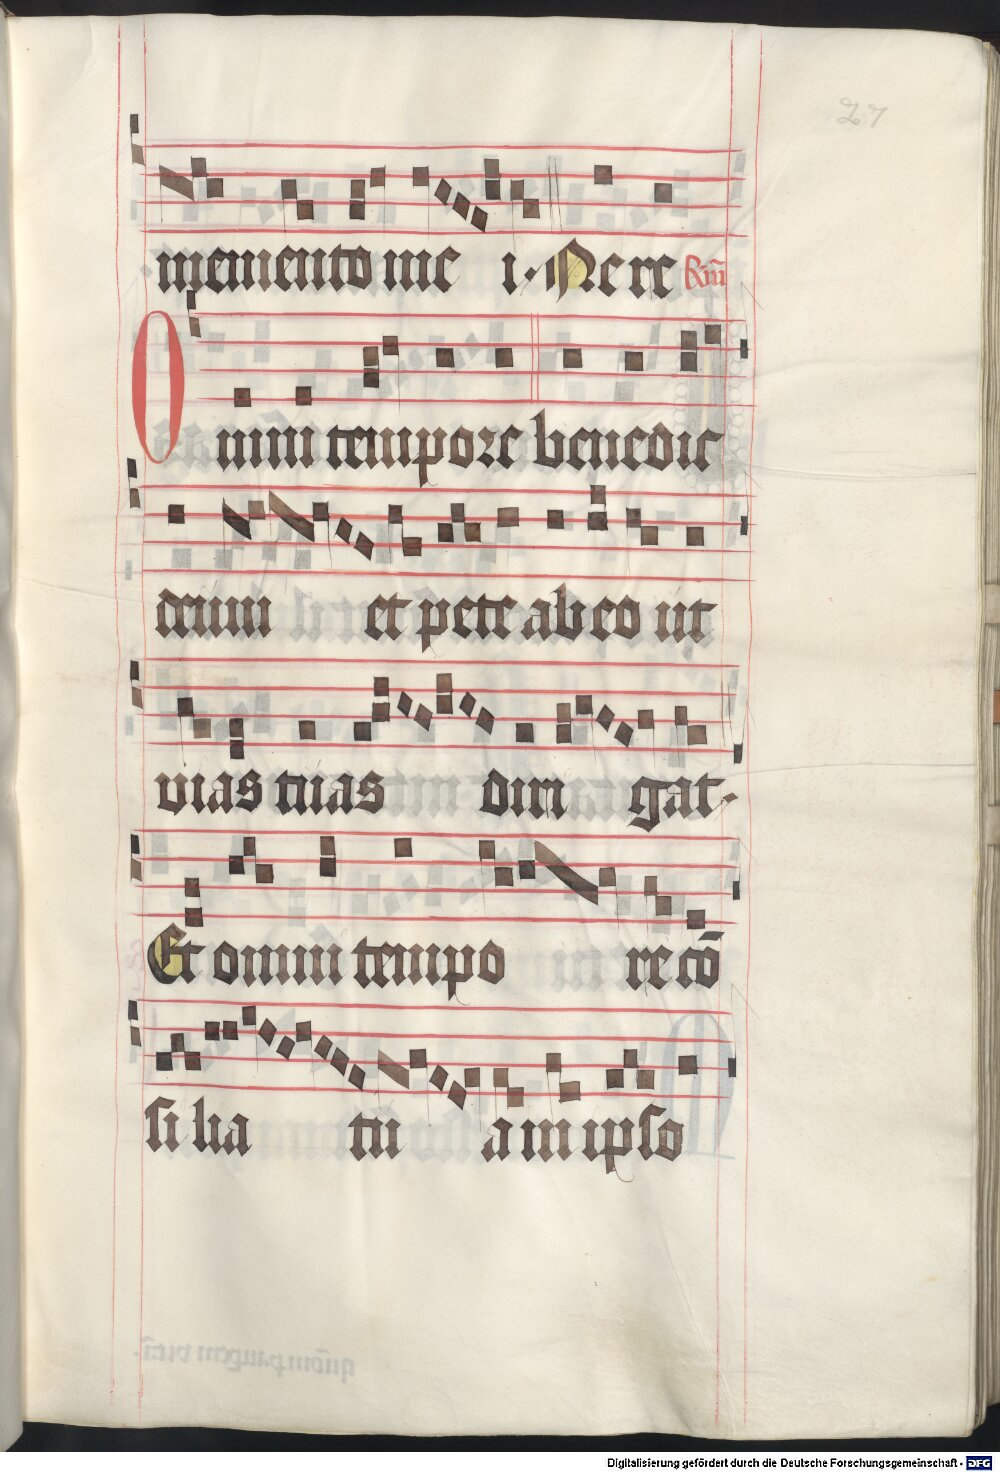 27
memento me i. Ne re Rm̄
Omni tempore benedic
deum et pete ab eo ut
vias tuas diri gat.
Et omni tempo re cō
silia tu a in ipso
Digitalisierung gefördert durch die Deutsche Forschungsgemeinschaft - DFG